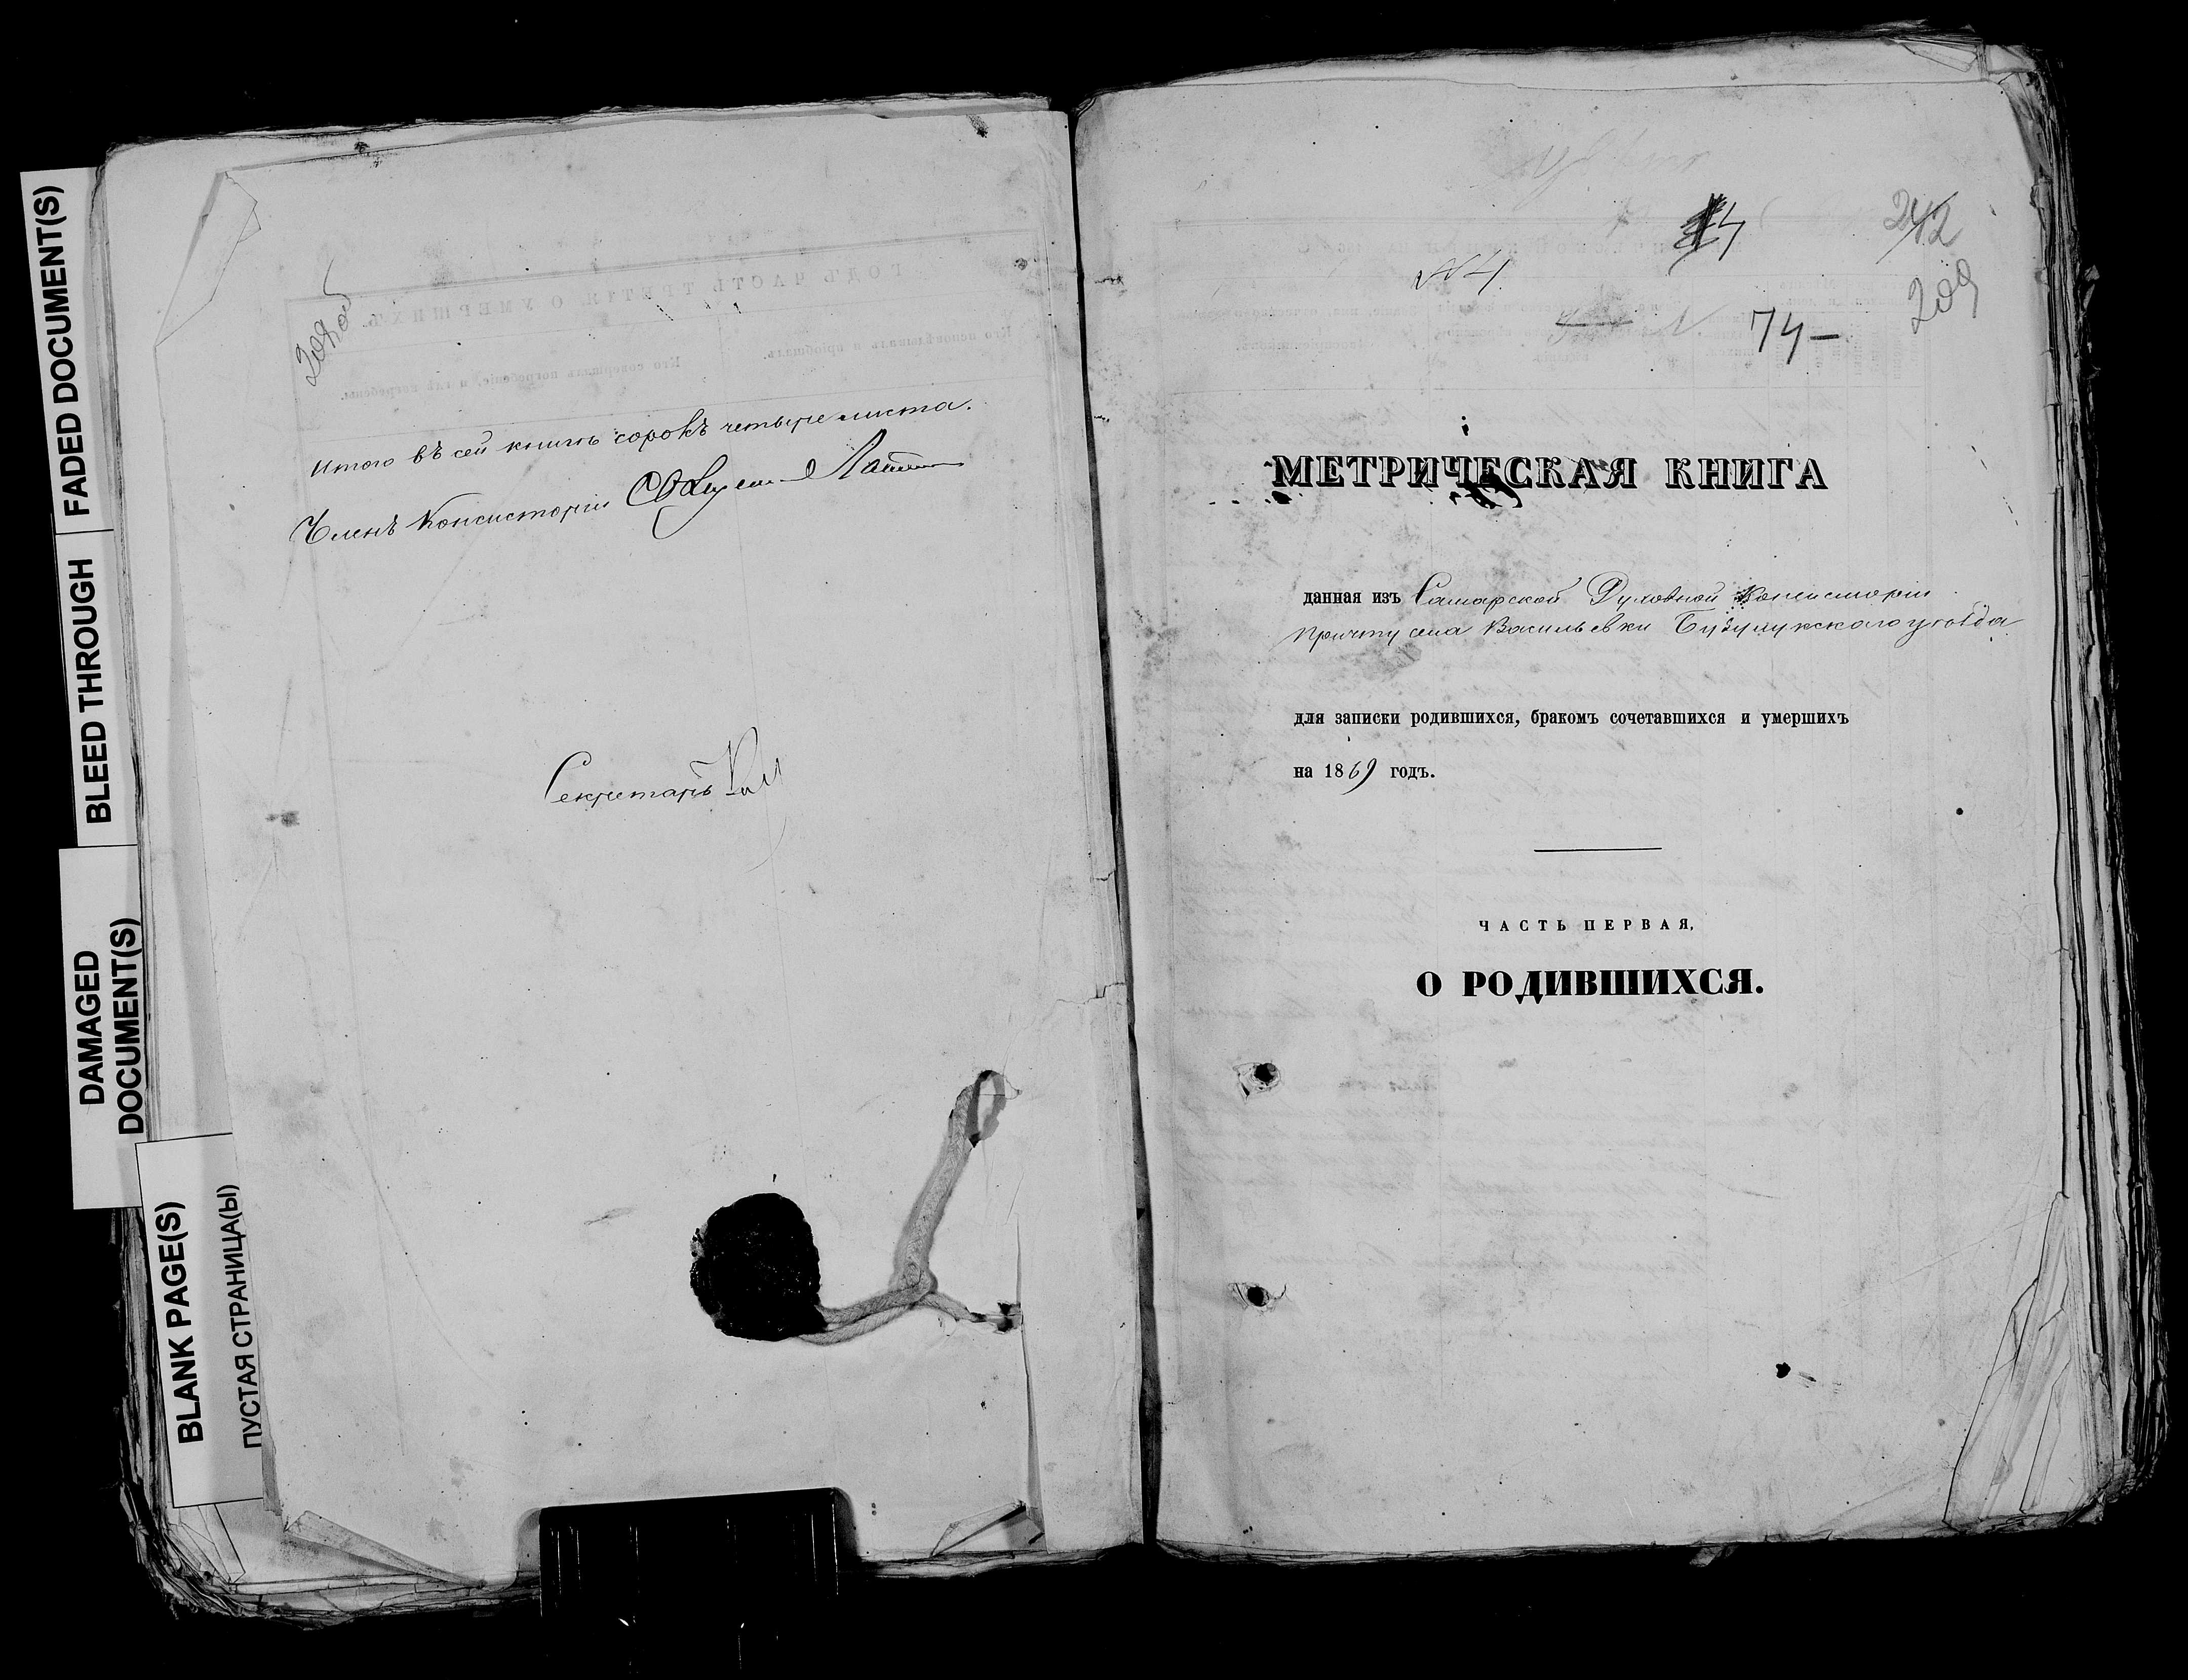 FADED DOCUMENT(S)
BLEED THROUGH
DAMAGED
DOCUMENT(S)
BLANK PAGE(S)
ПУСТАЯ СТРАНИЦА(Ы)
ГОДЪ ЧАСТЬ ТРЕТІЯ, О УМЕРШИХЪ.
Кто исповѣдывалъ и пріобщалъ.
Кто совершалъ погребеніе, и гдѣ погребены.
Итого въ сей книгѣ сорокъ четыре листа.
Членъ Консисторіи
Секретарь
242
209
№ 4
74 –
МЕТРИЧЕСКАЯ КНИГА
данная изъ Самарской Духовной Консисторіи
причту села Васильевки Бузулукскаго уѣзда
для записки родившихся, бракомъ сочетавшихся и умершихъ
на 1869 годъ.
ЧАСТЬ ПЕРВАЯ,
О РОДИВШИХСЯ.